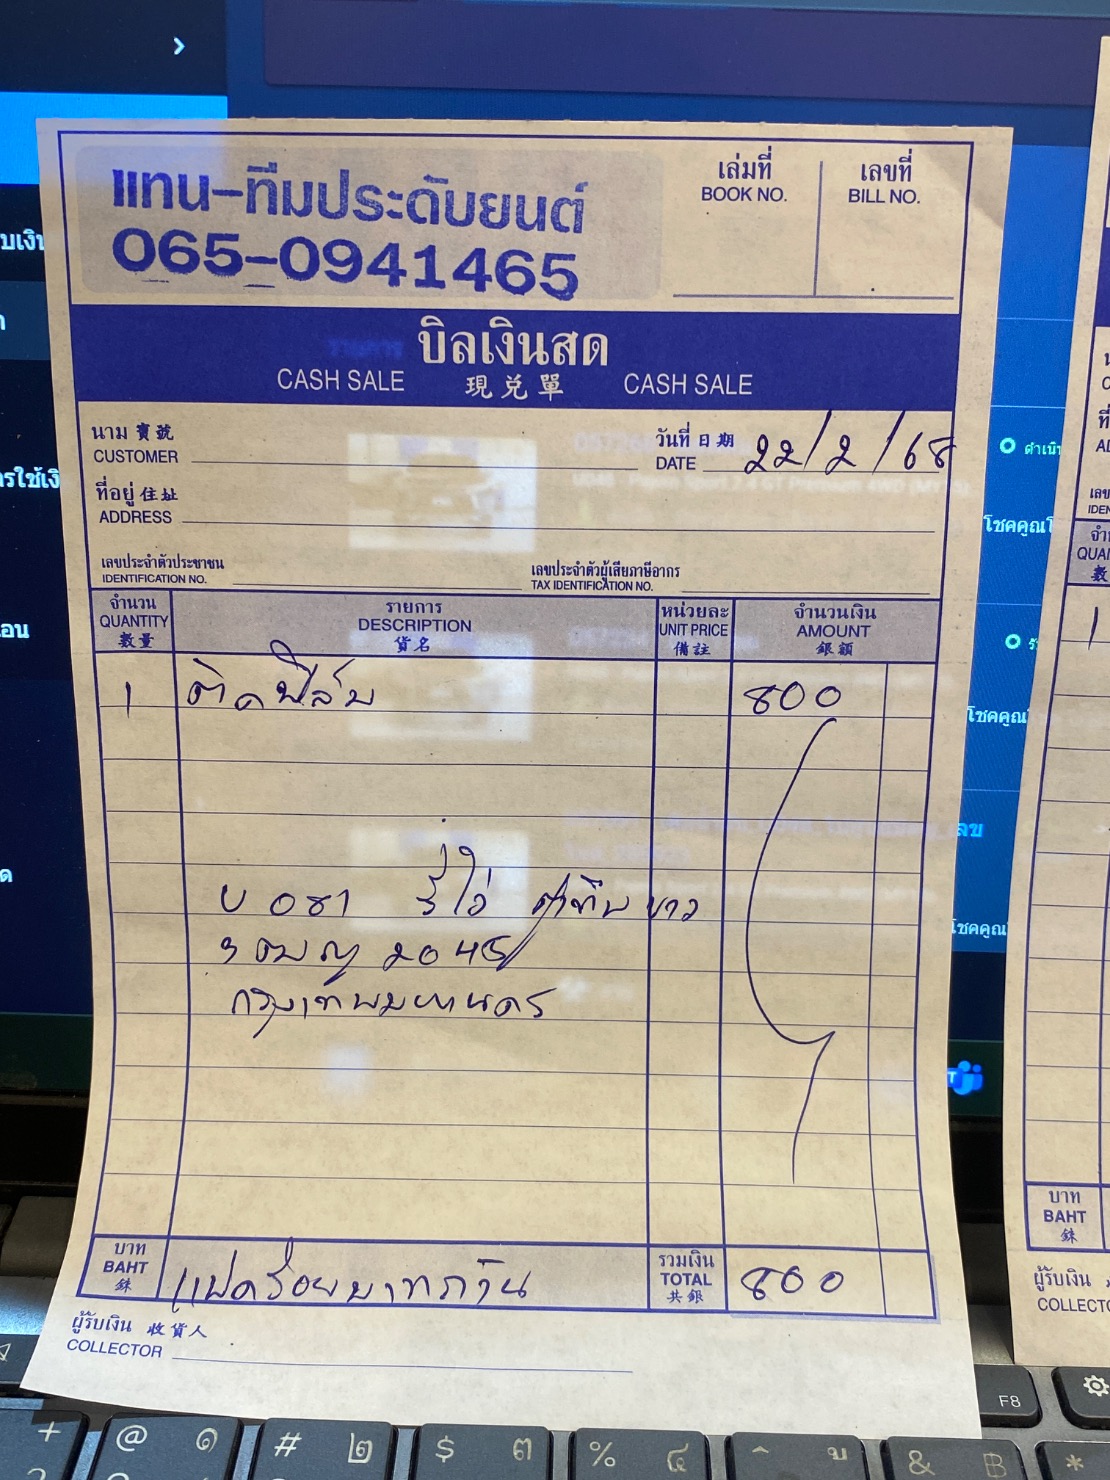 แทน-ทีมประดับยนต์
065-0941465
เล่มที่
BOOK NO.
เลขที่
BILL NO.
บิลเงินสด
CASH SALE 現兌單 CASH SALE
นาม 寶號
CUSTOMER
วันที่ 日期
DATE 22/2/68
ที่อยู่ 住址
ADDRESS
เลขประจำตัวประชาชน
IDENTIFICATION NO.
เลขประจำตัวผู้เสียภาษีอากร
TAX IDENTIFICATION NO.
จำนวน
QUANTITY
數量
รายการ
DESCRIPTION
貨名
หน่วยละ
UNIT PRICE
備註
จำนวนเงิน
AMOUNT
銀額
1 ติดฟิล์ม 800
U 081 รีโว่ ขาว
3 ฒญ 2045
กรุงเทพมหานคร
บาท
BAHT
銖
แปดร้อยบาทถ้วน
รวมเงิน
TOTAL
共銀
800
ผู้รับเงิน 收貨人
COLLECTOR
โชคคูณ
โชคคูณ
โชคคูณ
บาท
BAHT
銖
ผู้รับเงิน
F8
@ ๑
# ๒
$ ๓
% ๔
& ฿
*